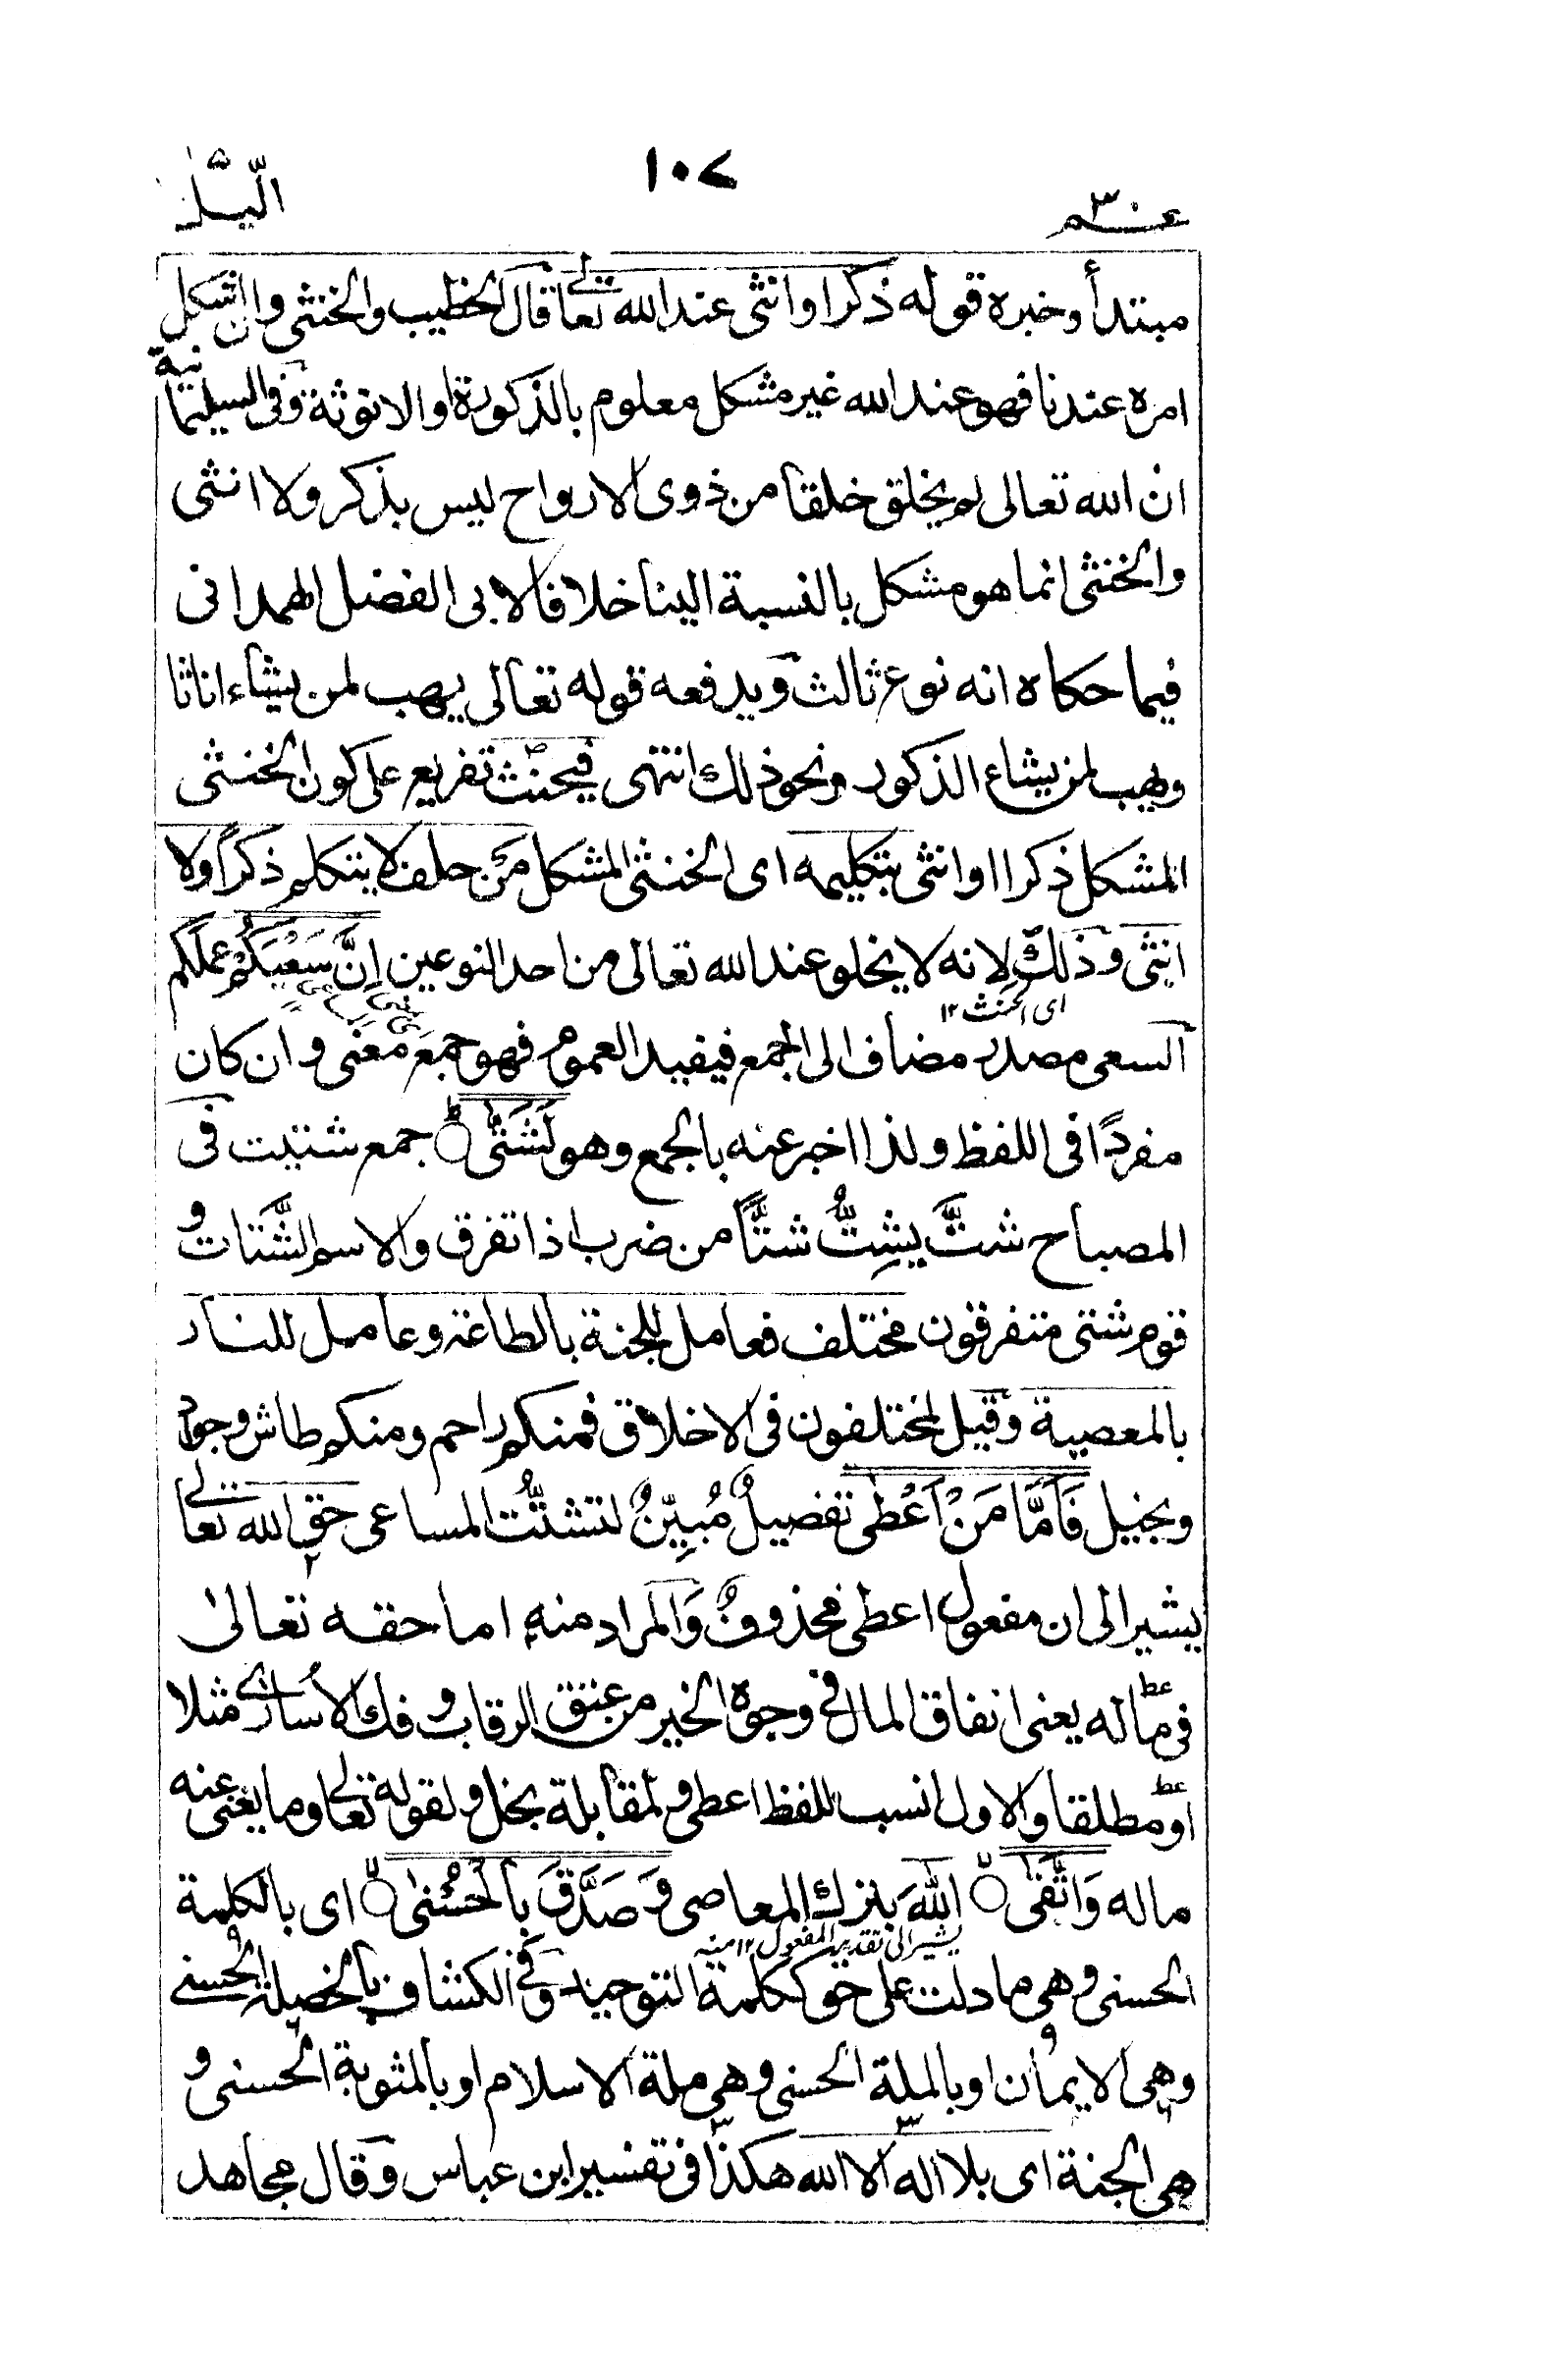 الّيل
١٠٧
عـم ٣٠
مبتدأ وخبره قوله ذكرا وانثى عند الله تعالى قال الخطيب والخنثى وان اشكل
امره عندنا فهو عند الله غير مشكل معلوم بالذكورة او الانوثة وفى السليمانية
ان الله تعالى لم يخلق خلقا من ذوى الارواح ليس بذكر ولا انثى
والخنثى انما هو مشكل بالنسبة الينا خلافا لابى الفضل الهمدانى
فيما حكاه انه نوع ثالث ويدفعه قوله تعالى يهب لمن يشاء اناثا
ويهب لمن يشاء الذكور ونحو ذلك انتهى فيحنث تفريع على كون الخنثى
المشكل ذكرا او انثى بتكليمه اى الخنثى المشكل من حلف لا يتكلم ذكراً ولا
انثى وذلك لانه لا يخلو عند الله تعالى من احد النوعين إِنَّ سَعْيَكُمْ عملكم
اى الحنث ١٢
السعى مصدر مضاف الى الجمع فيفيد العموم فهو جمع معنى وان كان
مفردًا فى اللفظ ولذا اخبر عنه بالجمع وهو لَشَتّٰى جمع شتيت فى
المصباح شتَّ يشِتُّ شتًّا من ضرب اذا تفرق والاسم الشَّتَاتُ و
قوم شتى متفرقون مختلف فعامل للجنة بالطاعة وعامل للنار
بالمعصية وقيل لمختلفون فى الاخلاق فمنكم راحم ومنكم طاش وجواد
وبخيل فَاَمَّا مَنْ اَعْطٰى تفصيلٌ مُبيِّنٌ لتشتُّت المساعى حق الله تعالى
يشير الى ان مفعول اعطى محذوفٌ وَالمراد منه اما حقه تعالىٰ
فى ماله يعنى انفاق المال فى وجوه الخير من عتق الرقاب وفك الاُسارٰى مثلا
او مطلقا والاول انسب للفظ اعطى ولمقابلة بخل ولقوله تعالى وما يغنى عنه
ماله وَاتَّقٰى اللهَ بترك المعاصى وَصَدَّقَ بِالْحُسْنٰى اى بالكلمة
يشير الى تقدير المفعول ١٢ منه
الحسنى وهى ما دلت على حق ككلمة التوحيد وفى الكشاف بالخصلة الحسنى
وهى الايمان او بالملة الحسنى وهى ملة الاسلام او بالمثوبة الحسنى و
هى الجنة اى بلا اله الا الله هكذا فى تفسير ابن عباس وقال مجاهد